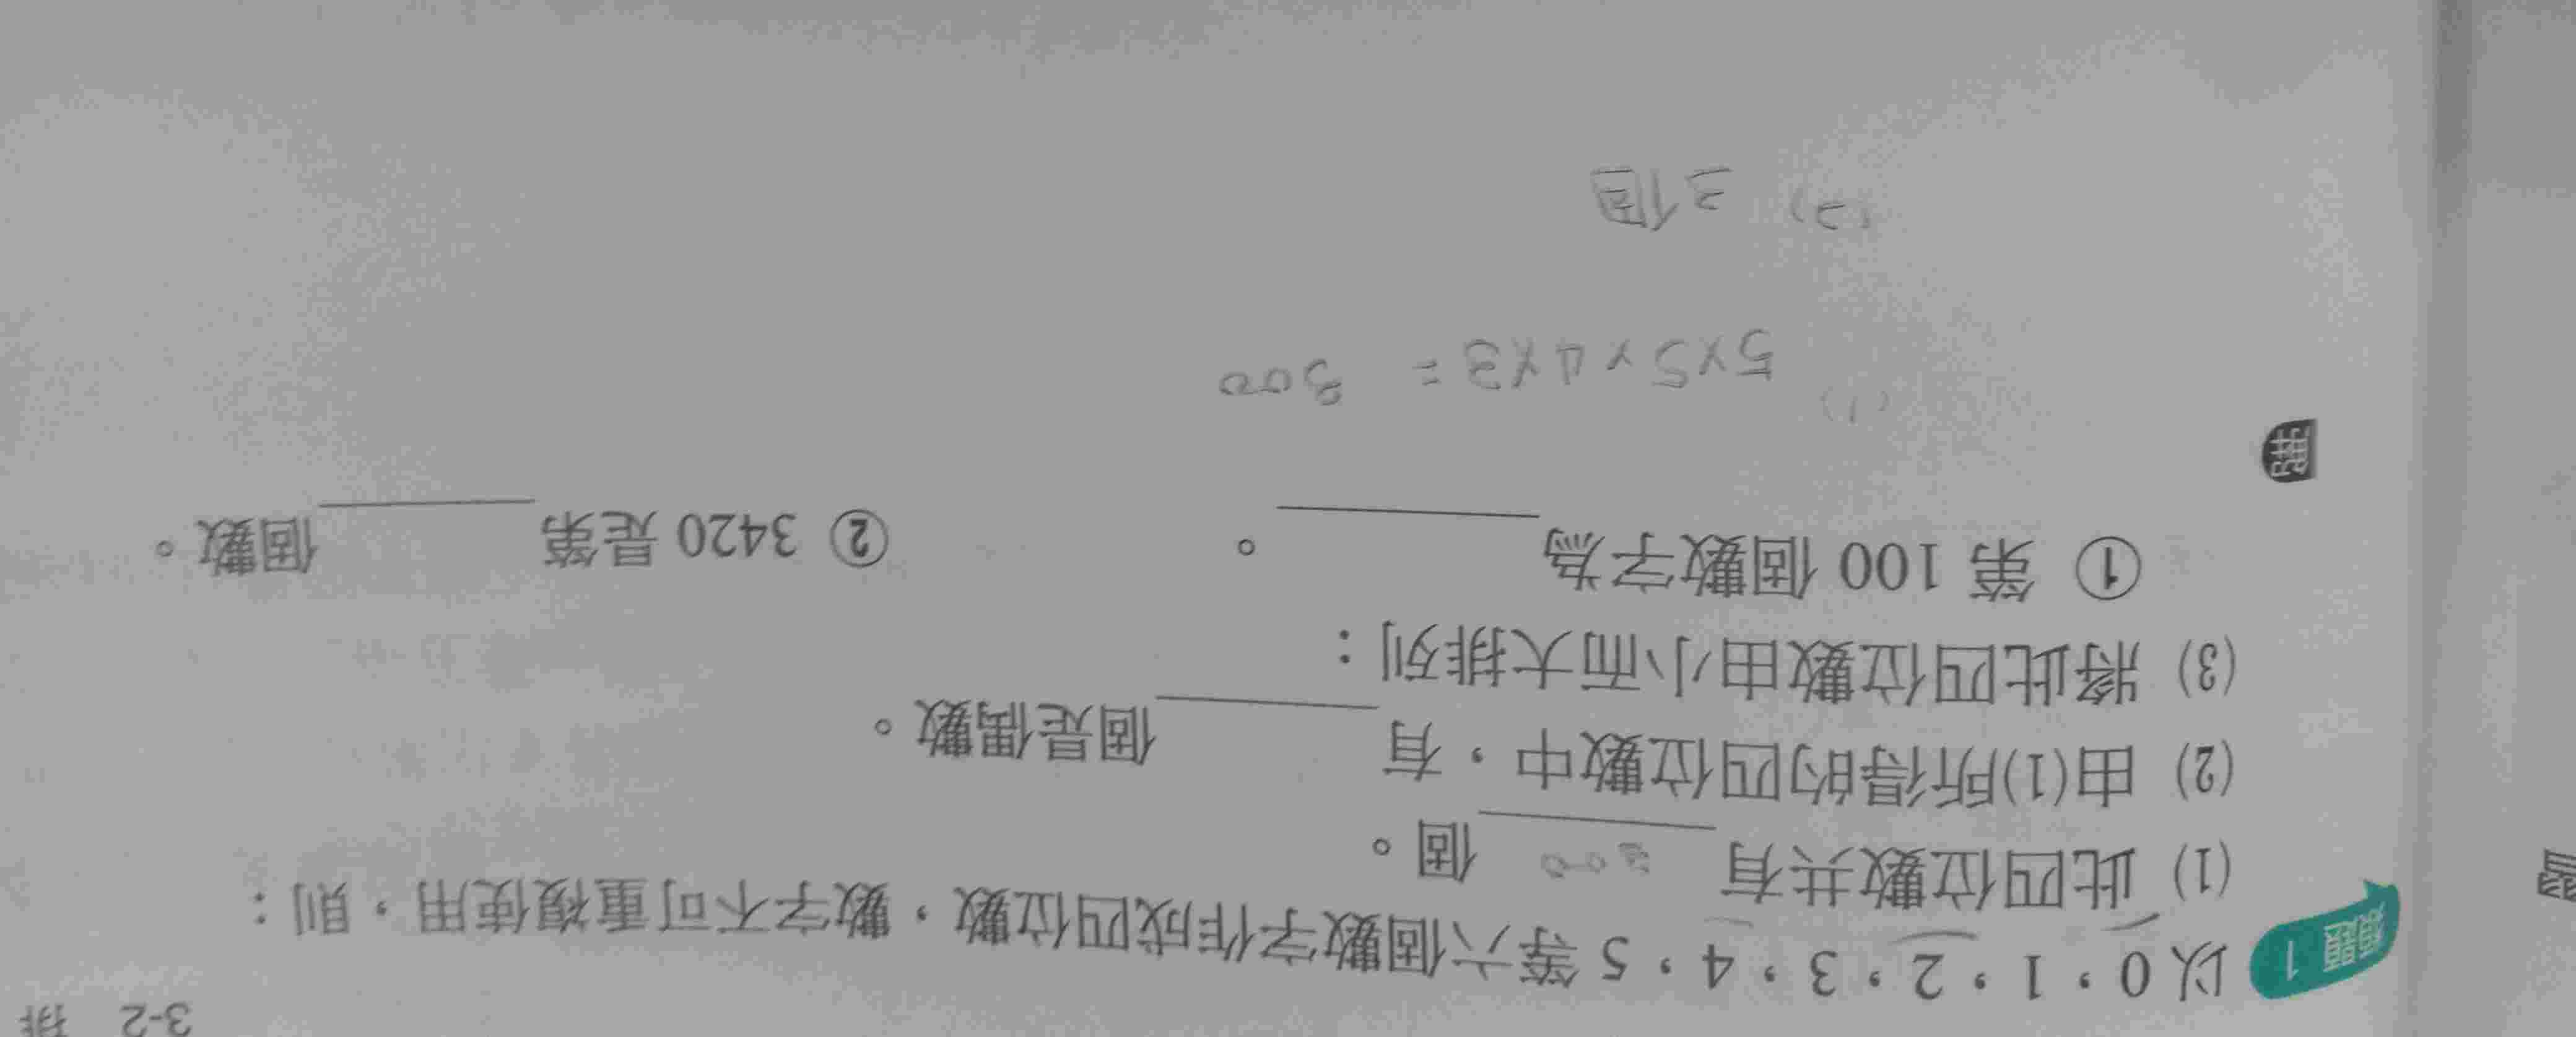 3-2 排
類題 1 以 0，1，2，3，4，5 等六個數字作成四位數，數字不可重複使用，則：
(1) 此四位數共有 300 個。
(2) 由(1)所得的四位數中，有______個是偶數。
(3) 將此四位數由小而大排列：
① 第 100 個數字為______。 ② 3420 是第______個數。
解
(1) 5×5×4×3 = 300
(2) 3個